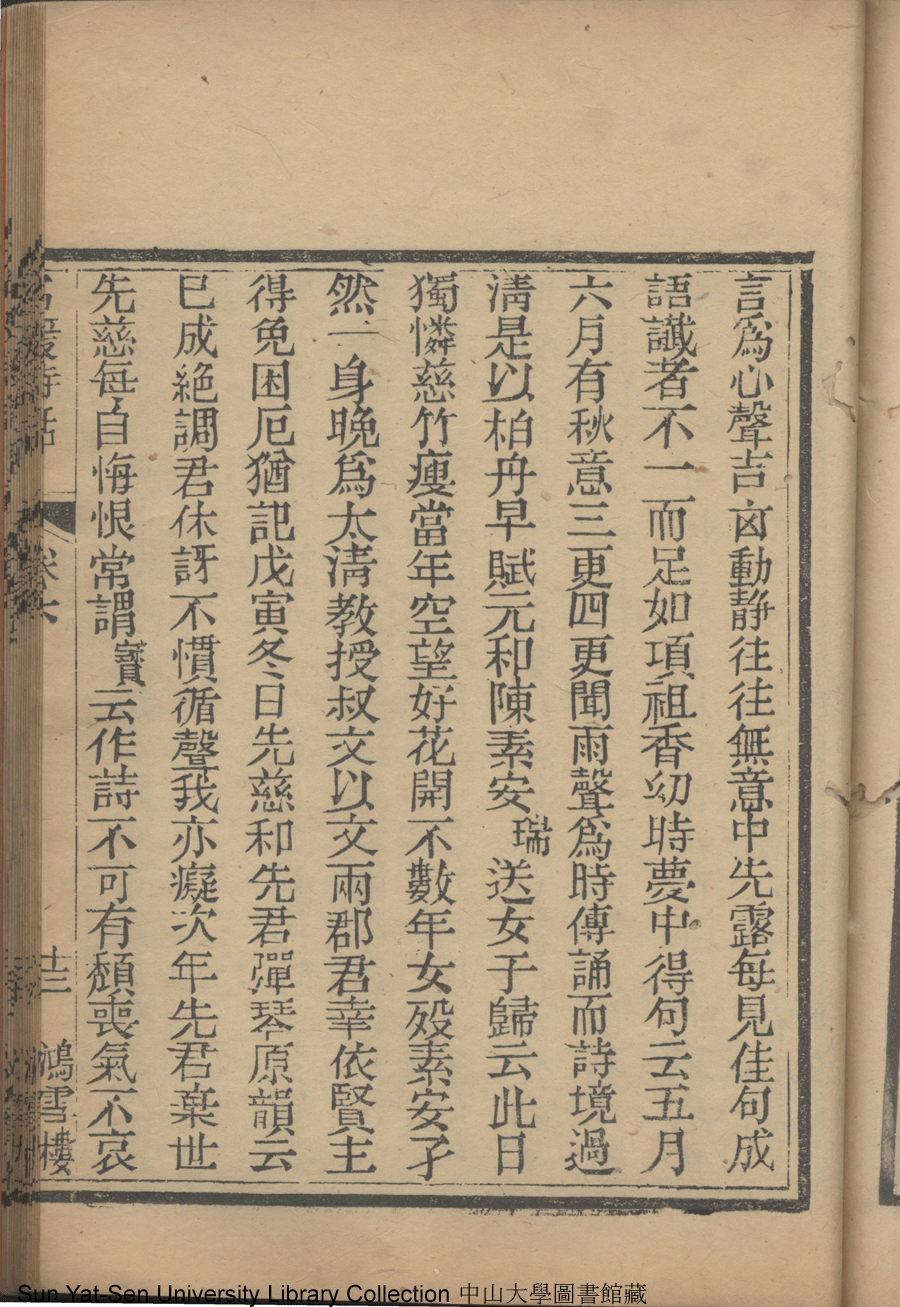 言爲心聲吉凶動靜往往無意中先露每見佳句成
語讖者不一而足如項祖香幼時夢中得句云五月
六月有秋意三更四更聞雨聲爲時傳誦而詩境過
淸是以柏舟早賦元和陳素安瑞送女于歸云此日
獨憐慈竹瘦當年空望好花開不數年女歿素安孑
然一身晚爲太淸敎授叔文以文兩郡君幸依賢主
得免困厄猶記戊寅冬日先慈和先君彈琴原韻云
已成絶調君休訝不慣循聲我亦癡次年先君棄世
先慈每自悔恨常謂寶云作詩不可有頹喪氣不哀
名媛詩話 卷六 十三 鴻雪樓
Sun Yat-Sen University Library Collection 中山大學圖書館藏